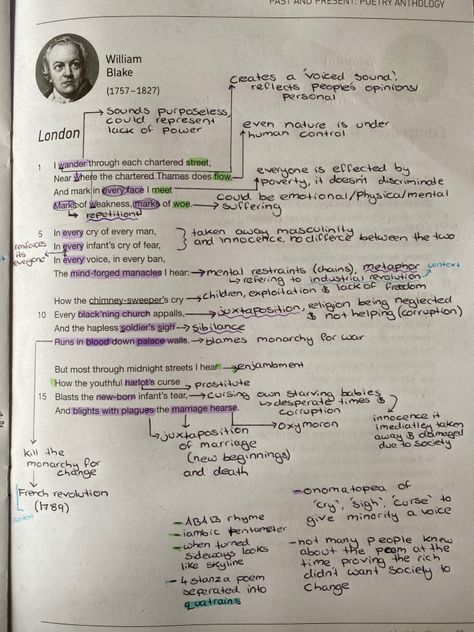 PAST AND PRESENT: POETRY ANTHOLOGY
William
Blake
(1757–1827)
creates a 'voiced sound',
reflects people's opinions/
personal
sounds purposeless,
could represent
lack of power
even nature is under
human control
London
1 I wander through each chartered street,
Near where the chartered Thames does flow,
And mark in every face I meet
Marks of weakness, marks of woe.
everyone is effected by
poverty, it doesn't discriminate
could be emotional/physical/mental
suffering
repetition
5 In every cry of every man,
In every infant's cry of fear,
In every voice, in every ban,
The mind-forged manacles I hear:
reinforces
its
everyone
taken away masculinity
and innocence, no differce between the two
mental restraints (chains), metaphor
context
referring to industrial revolution
How the chimney-sweeper's cry
10 Every black'ning church appalls,
And the hapless soldier's sigh
Runs in blood down palace walls.
children, exploitation & lack of freedom
juxtaposition, religion being neglected
& not helping (corruption)
sibilance
blames monarchy for war
But most through midnight streets I hear
How the youthful harlot's curse
15 Blasts the new-born infant's tear,
And blights with plagues the marriage hearse.
enjambment
prostitute
cursing own starving babies
desperate times &
corruption
oxymoron
innocence it
imediatley taken
away & damaged
due to society
juxtaposition
of marriage
(new beginnings)
and death
kill the
monarchy for
change
French revolution
(1789)
context
- ABAB rhyme
- iambic pentameter
- when turned
sideways looks
like skyline
- 4 stanza poem
seperated into
quatrains
- onomatopea of
'cry', 'sigh', 'curse' to
give minority a voice
- not many people knew
about the poem at the
time proving the rich
didn't want society to
change